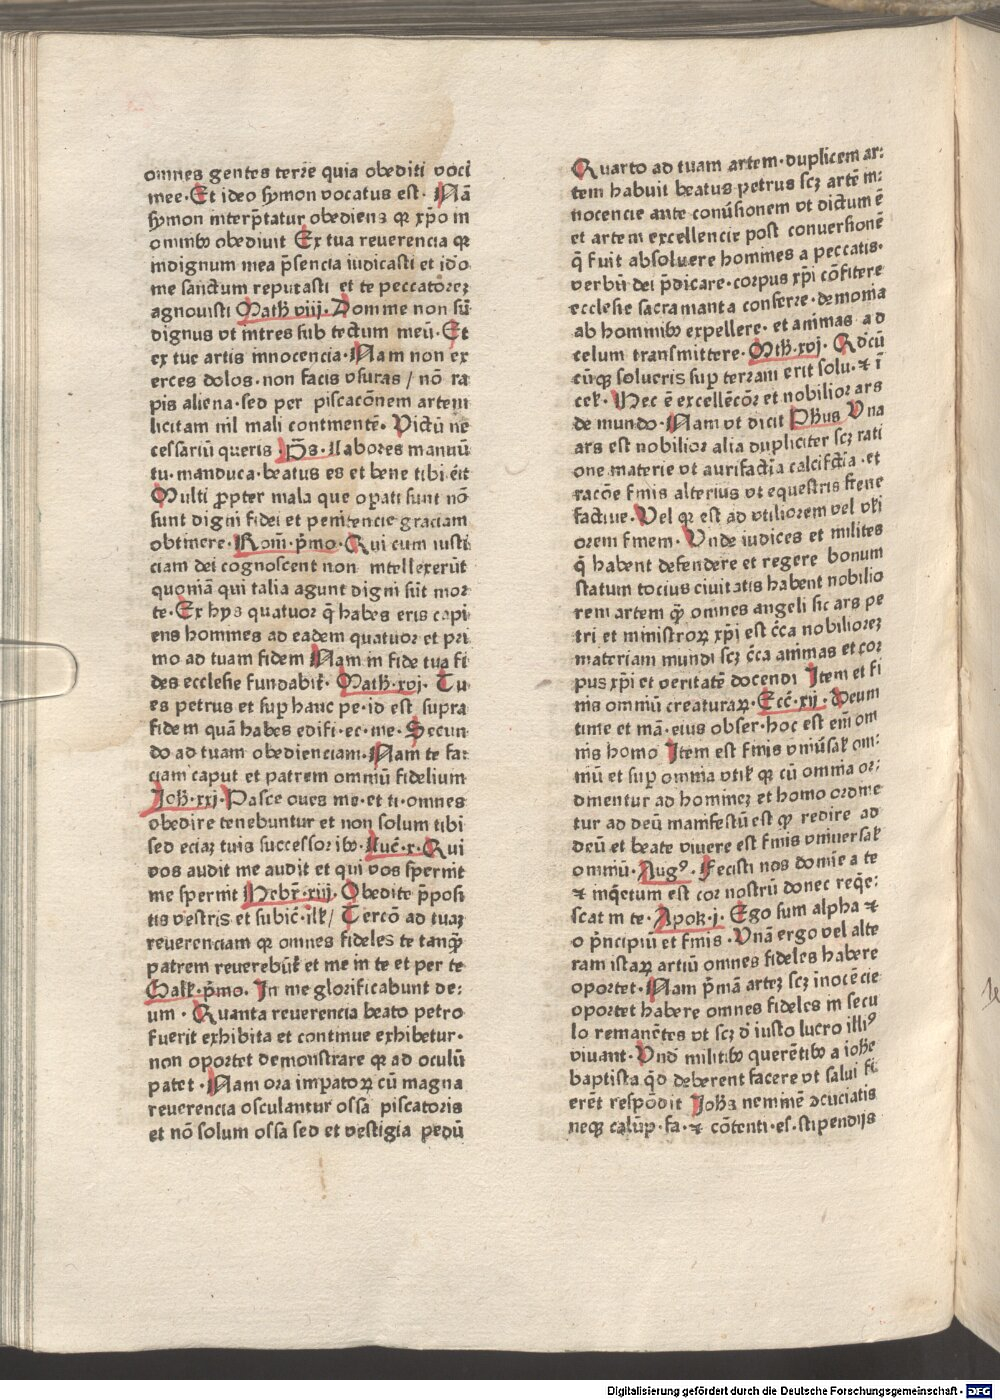 omnes gentes terre quia obediti voci
mee·Et ideo symon vocatus est· Nā
symon interp̄tatur obediens qr xp̄o in
omnibꝰ obediuit Ex tua reuerencia qr
indignum mea p̄sencia iudicasti et ido
me sanctum reputasti et te peccatorez
agnouisti Math viij· Domine non sū
dignus vt intres sub tectum meū· Et
ex tue artis innocencia·Nam non ex
erces dolos·non facis vsuras / nō ra
pis aliena·sed per piscacōnem artem
licitam nil mali continentē· Victū ne
cessariū queris ·P̄s· Labores manuū
tu·manduca·beatus es et bene tibi ēit
Multi ꝓpter mala que oꝑati sunt nō
sunt digni fidei et penitencie graciam
obtinere·Rom̄·p̄mo·Qui cum iusti
ciam dei cognoscent non intellexerūt
quoniā qui talia agunt digni sūt mor
te·Ex hys quatuor q̄ habes eris capi
ens homines ad eadem quatuor et pri
mo ad tuam fidem Nam in fide tua fi
des ecclesie fundabit̄· Math·xvj· Tu
es petrus et suꝑ hanc pe·id est supra
fidem quā habes edifi·ec·me·Secun
do ad tuam obedienciam·Nam te fa:
ciam caput et patrem omniū fidelium
Joh·xxj·Pasce oues me·et ti·omnes
obedire tenebuntur et non solum tibi
sed eciaꝫ tuis successoribꝰ·Luc̄·x·Qui
vos audit me audit et qui vos spernit
me spernit Hebr̄·xiij· Obedite p̄posi
tis vestris et subic̄·ill̄/ Tercō ad tuaꝫ
reuerenciam qr omnes fideles te tanqꝫ
patrem reuerebūt̄ et me in te et per te
Gall̄·p̄mo· In me glorificabunt de:
um · Quanta reuerencia beato petro
fuerit exhibita et continue exhibetur·
non oportet demonstrare qr ad oculū
patet·Nam ora impatoꝝ cū magna
reuerencia osculantur ossa piscatoris
et nō solum ossa sed et vestigia pedū
Quarto ad tuam artem·duplicem ar:
tem habuit beatus petrus scꝫ artē in:
nocencie ante conūsionem vt dictum ē
et artem excellencie post conuersionē
q̄ fuit absoluere homines a peccatis·
verbū dei p̄dicare·corpus xp̄i cōfitere
ecclesie sacramanta conferre·demonia
ab hominibꝰ expellere· et animas ad
celum transmittere·Mth·xvj· Qdcū
cūqꝫ solueris suꝑ terram erit solu·⁊ ī
cel̄·Hec ē excellēcōr et nobilior ars
de mundo·Nam vt dicit Ph̄us Vna
ars est nobilior alia dupliciter scꝫ rati
one materie vt aurifactīa calcifctīa·et
racōe finis alterius vt equestris frene
factiue·Vel qr est ad vtiliorem vel vl̄i
orem finem·Vnde iudices et milites
q̄ habent defendere et regere bonum
statum tocius ciuitatis habent nobilio
rem artem qꝫ omnes angeli sic ars pe
tri et ministroꝝ xp̄i est c̄ca nobilioreꝫ
materiam mundi scꝫ c̄ca animas et cor
pus xp̄i et veritatē docendi Item et fi
nis omniū creaturaꝝ·Ecc̄·xij·Deum
time et mā·eius obser·hoc est em̄ om
nis homo Item est finis vniūsal̄ om:
niū et suꝑ omnia vtil̄ qr cū omnia or:
dinentur ad homineꝫ et homo ordine
tur ad deū manifestū est qꝫ redire ad
deū et beate viuere est finis vniuersal̄
omniū·Augꝰ·Fecisti nos domīe a te
⁊ inq̄etum est cor nostrū donec req̄e:
scat in te·Apoꝶ·j· Ego sum alpha ⁊
o p̄ncipiū et finis·Vnā ergo vel alte
ram istaꝝ artiū omnes fideles habere
oportet·Nam p̄mā arteꝫ scꝫ inocēcie
oportet habere omnes fideles in secu
lo remanētes vt scꝫ d̄ iusto lucro illiꝰ
viuant·Vnd̄ militibꝰ querētibꝰ a ioh̄e
baptista qd̄ deberent facere vt salui fi
erēt respōdit Joh̄s neminē ↄcuciatis
neqꝫ calūp·fa·⁊ cōtenti·es·stipendijs
Digitalisierung gefördert durch die Deutsche Forschungsgemeinschaft · DFG